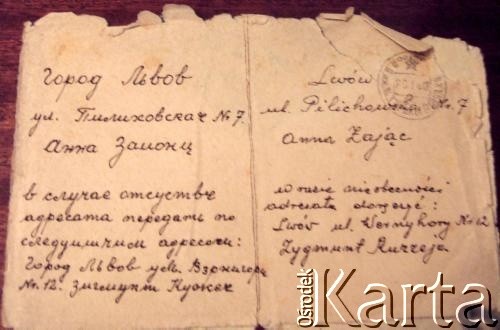 город Львов
ул. Пилиховская № 7.
Анна Заионц
в случае отсуствве
адресата передать по
следуишчим адресом:
Город Львов ул. Вэрнигоры
Nr. 12. Зигмунт
Lwów
ul. Pilichowska Nr. 7
Anna Zając
w razie nieobecności
adresata doręczyć:
Lwów ul. Wernyhory Nr 12
Zygmunt
Ośrodek
Karta